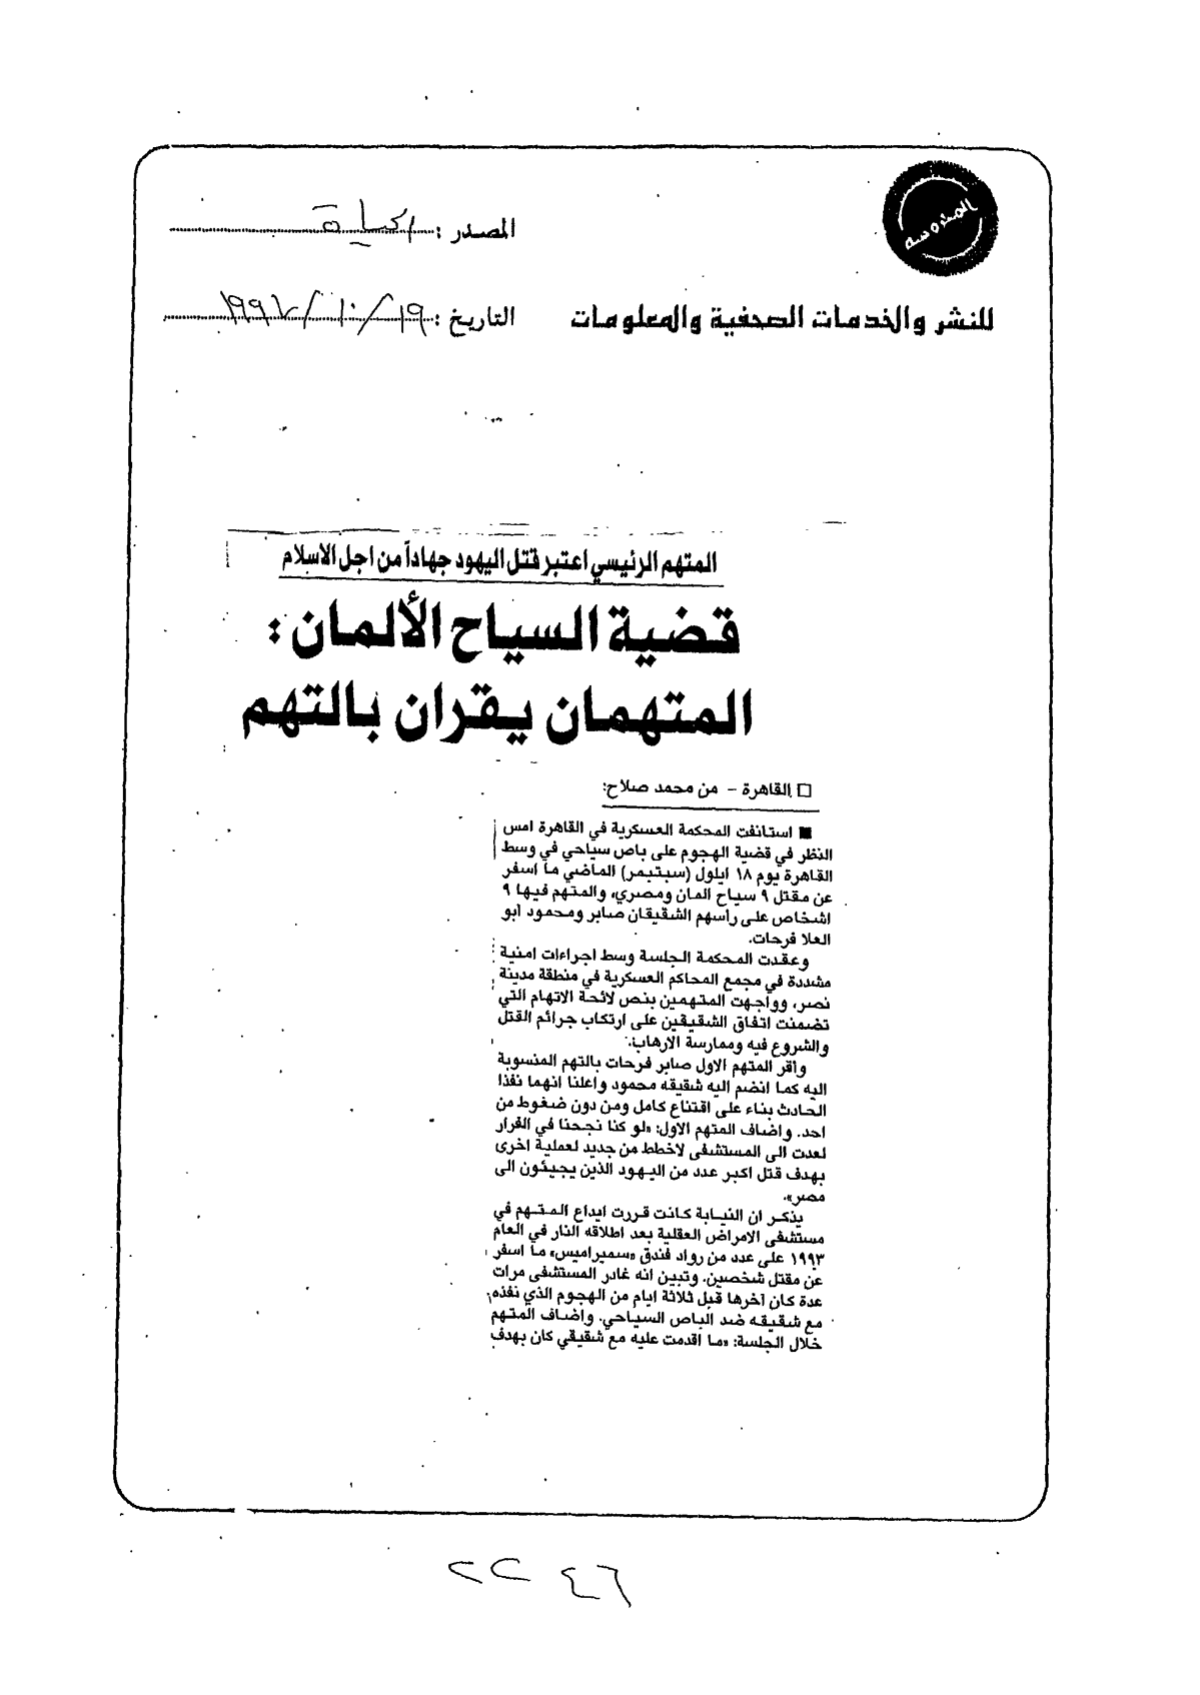 المصدر : الحياة
للنشر والخدمات الصحفية والمعلومات
التاريخ : ١٩ / ١٠ / ١٩٩٧
المتهم الرئيسي اعتبر قتل اليهود جهاداً من اجل الاسلام
قضية السياح الألمان :
المتهمان يقران بالتهم
□ القاهرة - من محمد صلاح:
■ استانفت المحكمة العسكرية في القاهرة امس
النظر في قضية الهجوم على باص سياحي في وسط
القاهرة يوم ١٨ ايلول (سبتمبر) الماضي ما اسفر
عن مقتل ٩ سياح المان ومصري، والمتهم فيها ٩
اشخاص على راسهم الشقيقان صابر ومحمود ابو
العلا فرحات.
وعقدت المحكمة الجلسة وسط اجراءات امنية
مشددة في مجمع المحاكم العسكرية في منطقة مدينة
نصر، وواجهت المتهمين بنص لائحة الاتهام التي
تضمنت اتفاق الشقيقين على ارتكاب جرائم القتل
والشروع فيه وممارسة الارهاب.
واقر المتهم الاول صابر فرحات بالتهم المنسوبة
اليه كما انضم اليه شقيقه محمود واعلنا انهما نفذا
الحادث بناء على اقتناع كامل ومن دون ضغوط من
احد. واضاف المتهم الاول: «لو كنا نجحنا في الفرار
لعدت الى المستشفى لاخطط من جديد لعملية اخرى
بهدف قتل اكبر عدد من اليهود الذين يجيئون الى
مصر».
يذكر ان النيابة كانت قررت ايداع المتهم في
مستشفى الامراض العقلية بعد اطلاقه النار في العام
١٩٩٣ على عدد من رواد فندق «سميراميس» ما اسفر
عن مقتل شخصين. وتبين انه غادر المستشفى مرات
عدة كان آخرها قبل ثلاثة ايام من الهجوم الذي نفذه
مع شقيقه ضد الباص السياحي. واضاف المتهم
خلال الجلسة: «ما اقدمت عليه مع شقيقي كان بهدف